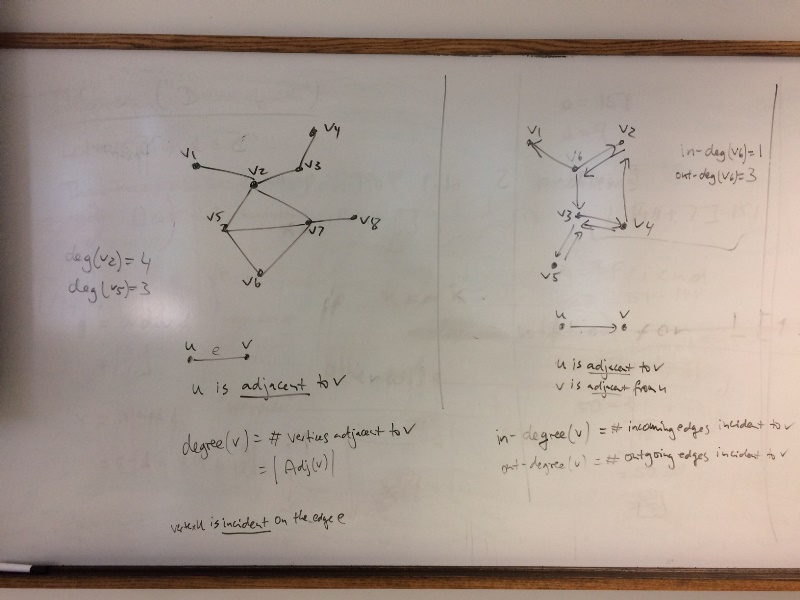 v1
v2
v3
v4
v5
v6
v7
v8
deg(v2)=4
deg(v5)=3
u e v
u is adjacent to v
degree(v) = # vertices adjacent to v
= |Adj(v)|
is incident on the edge e
v1
v2
v6
v3
v4
v5
in-deg(v6)=1
out-deg(v6)=3
u v
u is adjacent to v
v is adjacent from u
in-degree(v) = # incoming edges incident to v
out-degree(v) = # outgoing edges incident to v